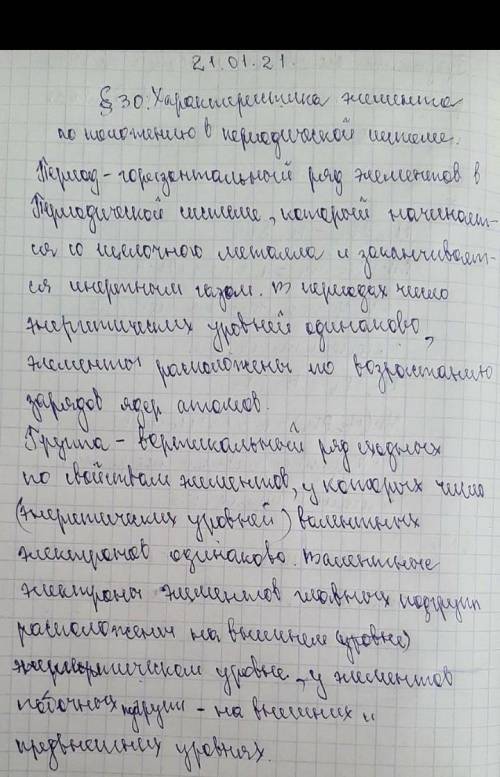 21.01.21.
§30. Характеристика элемента
по положению в периодической системе.
Период - горизонтальный ряд элементов в
Периодической системе, который начинает-
ся со щелочного металла и заканчивает-
ся инертным газом. В периодах число
энергетических уровней одинаково,
элементы расположены по возростанию
зарядов ядер атомов.
Группа - вертикальный ряд сходных
по свойствам элементов, у которых число
(энергетических уровней) валентных
электронов одинаково. Валентные
электроны элементов главных подгрупп
расположены на внешнем (уровне)
энергетическом уровне, у элементов
побочных групп - на внешних и
предвнешних уровнях.